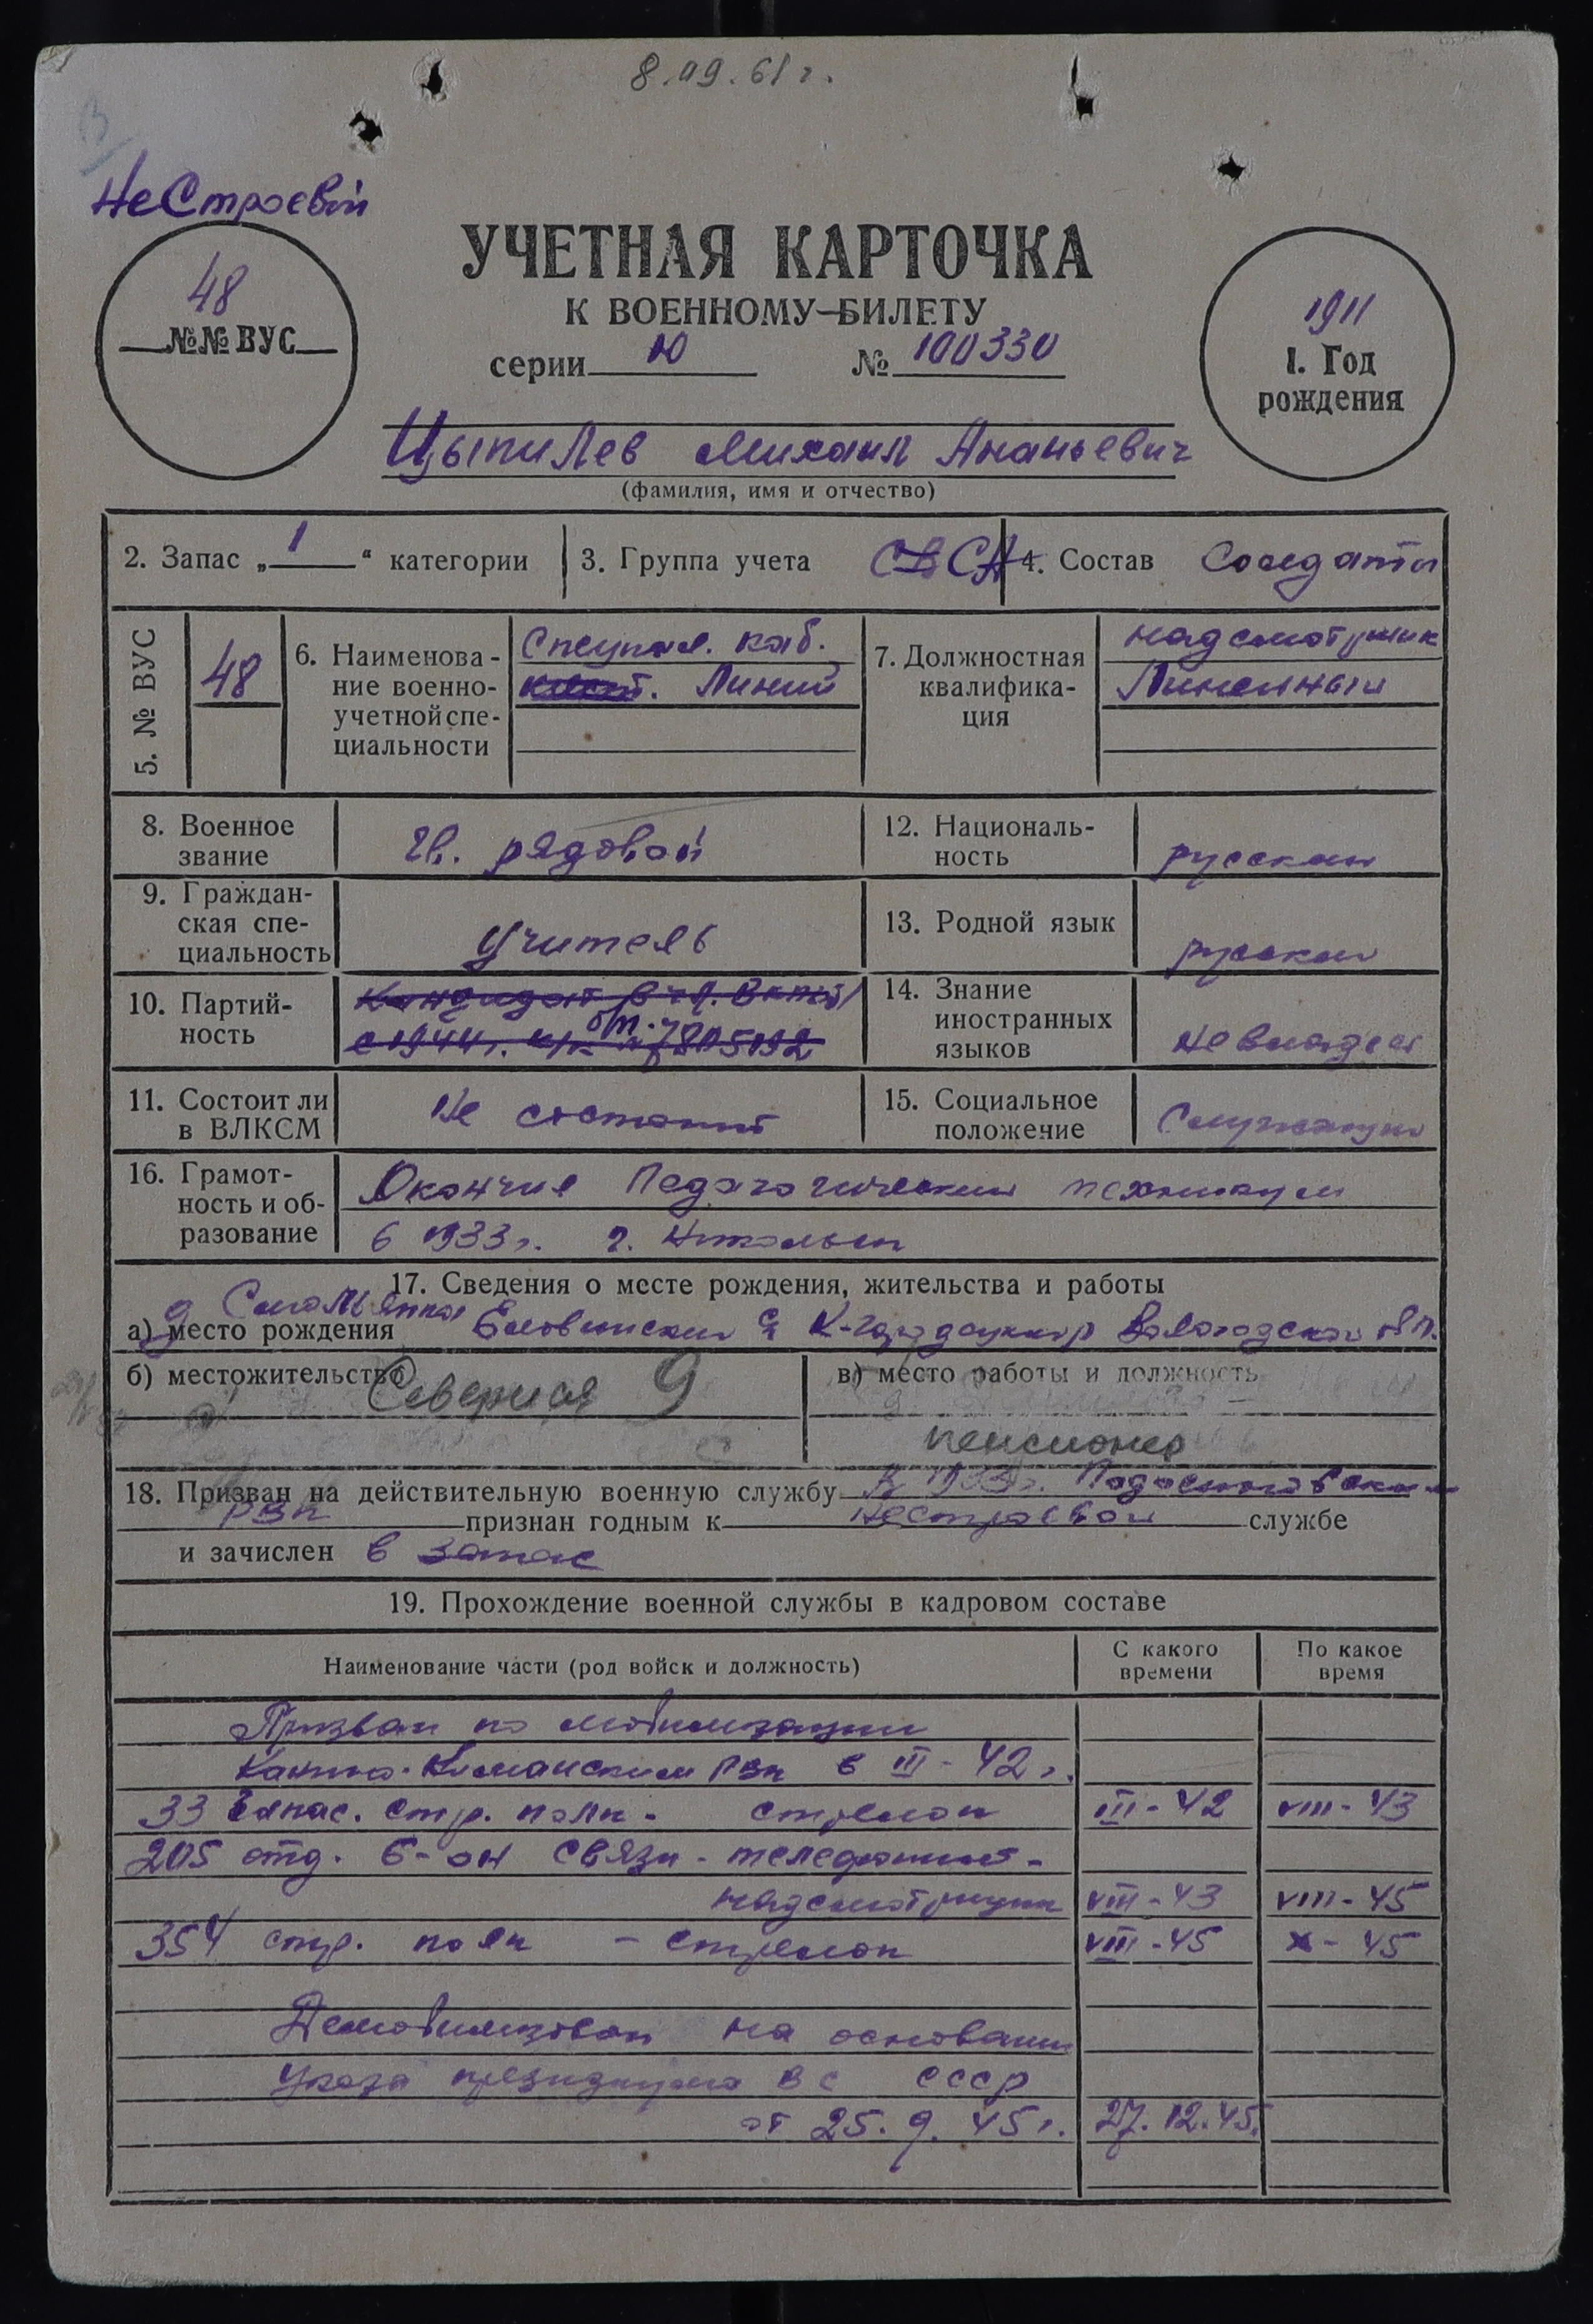 8.09.61 г.
Не Строевой
УЧЕТНАЯ КАРТОЧКА
К ВОЕННОМУ БИЛЕТУ
48
№№ ВУС
серии Ю № 100330
1911
1. Год
рождения
Цыпилев Михаил Ананьевич
(фамилия, имя и отчество)
2. Запас „1“ категории
3. Группа учета СА
4. Состав Солдаты
5. № ВУС
48
6. Наименова-
ние военно-
учетной спе-
циальности
Специал. каб.
Линий
7. Должностная
квалифика-
ция
надсмотрщик
Линейный
8. Военное
звание
Гв. рядовой
12. Националь-
ность
русский
9. Граждан-
ская спе-
циальность
Учитель
13. Родной язык
русский
10. Партий-
ность
Кандидат в чл. ВКП(б)
с 1944 г. к/к № 7805192
б/п.
14. Знание
иностранных
языков
не владеет
11. Состоит ли
в ВЛКСМ
Не состоит
15. Социальное
положение
Служащий
16. Грамот-
ность и об-
разование
Окончил Педагогический техникум
в 1933 г. г. Никольск
17. Сведения о месте рождения, жительства и работы
а) место рождения
д Смольянка Еловинский с К-Городецкий р Вологодской обл.
б) местожительство
Северная 9
в) место работы и должность
пенсионер
18. Призван на действительную военную службу В 1933 г. Подосиновским
РВК признан годным к нестроевой службе
и зачислен в запас
19. Прохождение военной службы в кадровом составе
Наименование части (род войск и должность)
С какого
времени
По какое
время
Призван по мобилизации
РВК в III - 42 г.
33 запас. стр. полк - стрелок III - 42 VIII - 43
205 отд. б-он связи - телефонист -
надсмотрщик VIII - 43 VIII - 45
354 стр. полк - стрелок VIII - 45 X - 45
Демобилизован на основании
Указа президиума ВС СССР
от 25. 9. 45 г. 27. 12. 45.